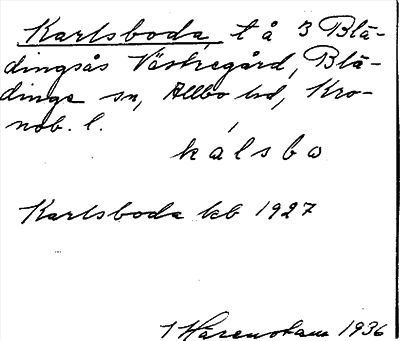 Karlsboda, t å 3 Blä-
dingsås Västregård, Blä-
dinge sn, Allbo hd, Kro-
nob. l.
kálsbo
Karlsboda kb 1927
1936